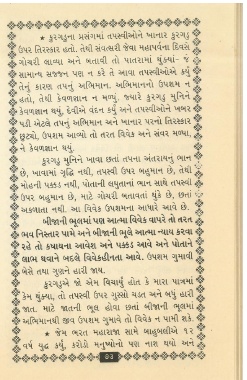 ★ કુરગડુના પ્રસંગમાં તપસ્વીઓને ખાનાર કુરગડુ
ઉપર તિરસ્કાર હતો. તેથી સંવત્સરી જેવા મહાપર્વના દિવસે
ગોચરી લાવ્યા અને બતાવી તો પાતરામાં થુંક્યાં- જે
સામાન્ય સજ્જન પણ ન કરે તે આવા તપસ્વીઓએ કર્યું
તેનું કારણ તપનું અભિમાન. અભિમાનનો ઉપશમ ન
હતો, તેથી કેવળજ્ઞાન ન મળ્યું. જ્યારે કુરગડુ મુનિને
કેવળજ્ઞાન થયું, દેવીએ વંદન કર્યું અને તપસ્વીઓને ખબર
પડી એટલે તપનું અભિમાન અને ખાનાર પરનો તિરસ્કાર
છુટ્યો. ઉપશમ આવ્યો તો તરત વિવેક અને સંવર મળ્યા,
ને કેવળજ્ઞાન થયું.
કુરગડુ મુનિને ખાવા છતાં તપના અંતરાયનું ભાન
છે, ખાવામાં ગૃદ્ધિ નથી, તપસ્વી ઉપર બહુમાન છે, તેથી
મોહની પક્કડ નથી, પોતાની લઘુતાનાં ભાન સાથે તપસ્વી
ઉપર બહુમાન છે, માટે ગોચરી બતાવતાં થુંકે છે, છતાં
અકળાતા નથી. આ વિવેક ઉપશમના આધારે આવે છે.
બીજાની ભૂલમાં પણ આત્મા વિવેક વાપરે તો તરત
ભવ નિસ્તાર પામે અને બીજાની ભૂલે આત્મા ન્યાય કરવા
રહે તો કષાયના આવેશ અને પક્કડ આવે અને પોતાને
લાભ થવાને બદલે વિવેકહીનતા આવે. ઉપશમ ગુમાવી
બેસે તથા ગુણને હારી જાય.
કુરગડુએ જો એમ વિચાર્યું હોત કે મારા પાત્રામાં
કેમ થુંક્યા, તો તપસ્વી ઉપર ગુસ્સો ચડત અને બધું હારી
જાત. માટે જાતની ભૂલ હોવા છતાં બીજાની ભૂલમાં
અભિમાનથી જીવ ઉપશમ ગુમાવે તો વિવેક ન પામી શકે.
★ જેમ ભરત મહારાજા સામે બાહુબલીએ ૧૨
વર્ષ યુદ્ધ કર્યું, કરોડો મનુષ્યોનો પણ નાશ થયો અને